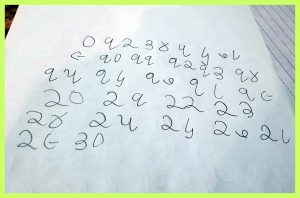 ૦ ૧ ૨ ૩ ૪ ૫ ૬ ૭ ૮
૯ ૧૦ ૧૧ ૧૨ ૧૩ ૧૪
૧૫ ૧૬ ૧૭ ૧૮ ૧૯
૨૦ ૨૧ ૨૨ ૨૩
૨૪ ૨૫ ૨૬ ૨૭ ૨૮
૨૯ ૩૦